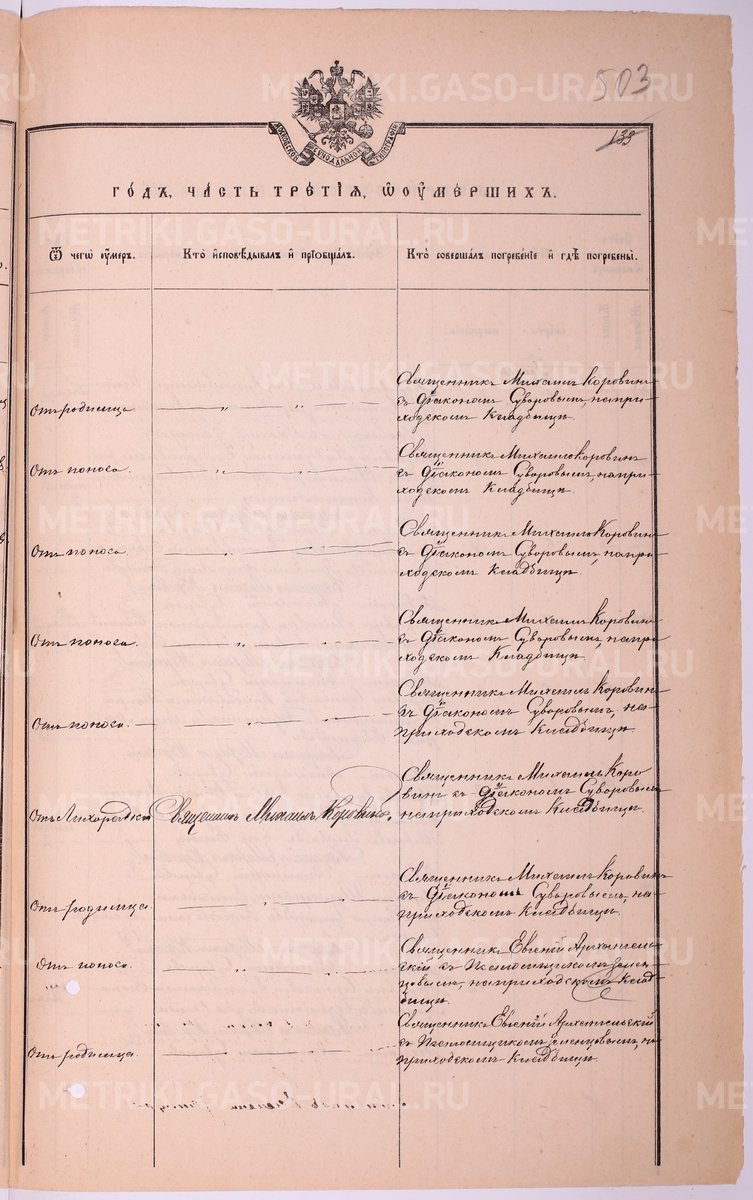 METRIKI.GASO-URAL.RU
503
138
МОСКОВСКОЙ СѴНОДАЛЬНОЙ ТИПОГРАФІИ
ГОДЪ, ЧАСТЬ ТРЕТІЯ, Ѡ ОУМЕРШИХЪ.
Ѿ чегѡ оумеръ.
Кто исповѣдывалъ и прїобщалъ.
Кто совершалъ погребенїе и гдѣ погребены.
Отъ родимца.
Священникъ Михаилъ Коровинъ
съ Діакономъ Суворовымъ, на при-
ходскомъ кладбищѣ.
METRIKI.GASO-URAL.RU
Отъ поноса.
Священникъ Михаилъ Коровинъ
съ Діакономъ Суворовымъ, на при-
ходскомъ кладбищѣ.
METRIKI.GASO-URAL.RU
Отъ поноса.
Священникъ Михаилъ Коровинъ
съ Діакономъ Суворовымъ, на при-
ходскомъ кладбищѣ.
Отъ поноса.
Священникъ Михаилъ Коровинъ
съ Діакономъ Суворовымъ, на при
ходскомъ кладбищѣ.
METRIKI.GASO-URAL.RU
Отъ поноса.
Священникъ Михаилъ Коровинъ
съ Діакономъ Суворовымъ, на-
приходскомъ кладбищѣ.
METRIKI.GASO-URAL.RU
Отъ Лихорадки
Священникъ Михаилъ Коровинъ.
Священникъ Михаилъ Коро
винъ съ Діакономъ Суворовымъ
на приходскомъ кладбищѣ
Отъ родимца.
Священникъ Михаилъ Коровинъ
съ Діакономъ Суворовымъ, на-
приходскомъ кладбищѣ.
METRIKI.GASO-URAL.RU
Отъ поноса.
Священникъ Евгеній Архангель-
скій съ Псаломщикомъ Зелен-
цовымъ, на приходскомъ клад-
бищѣ.
Отъ родимца.
Священникъ Евгеній Архангельскій
съ Псаломщикомъ Зеленцовымъ, на
приходскомъ кладбищѣ.
METRIKI.GASO-URAL.RU